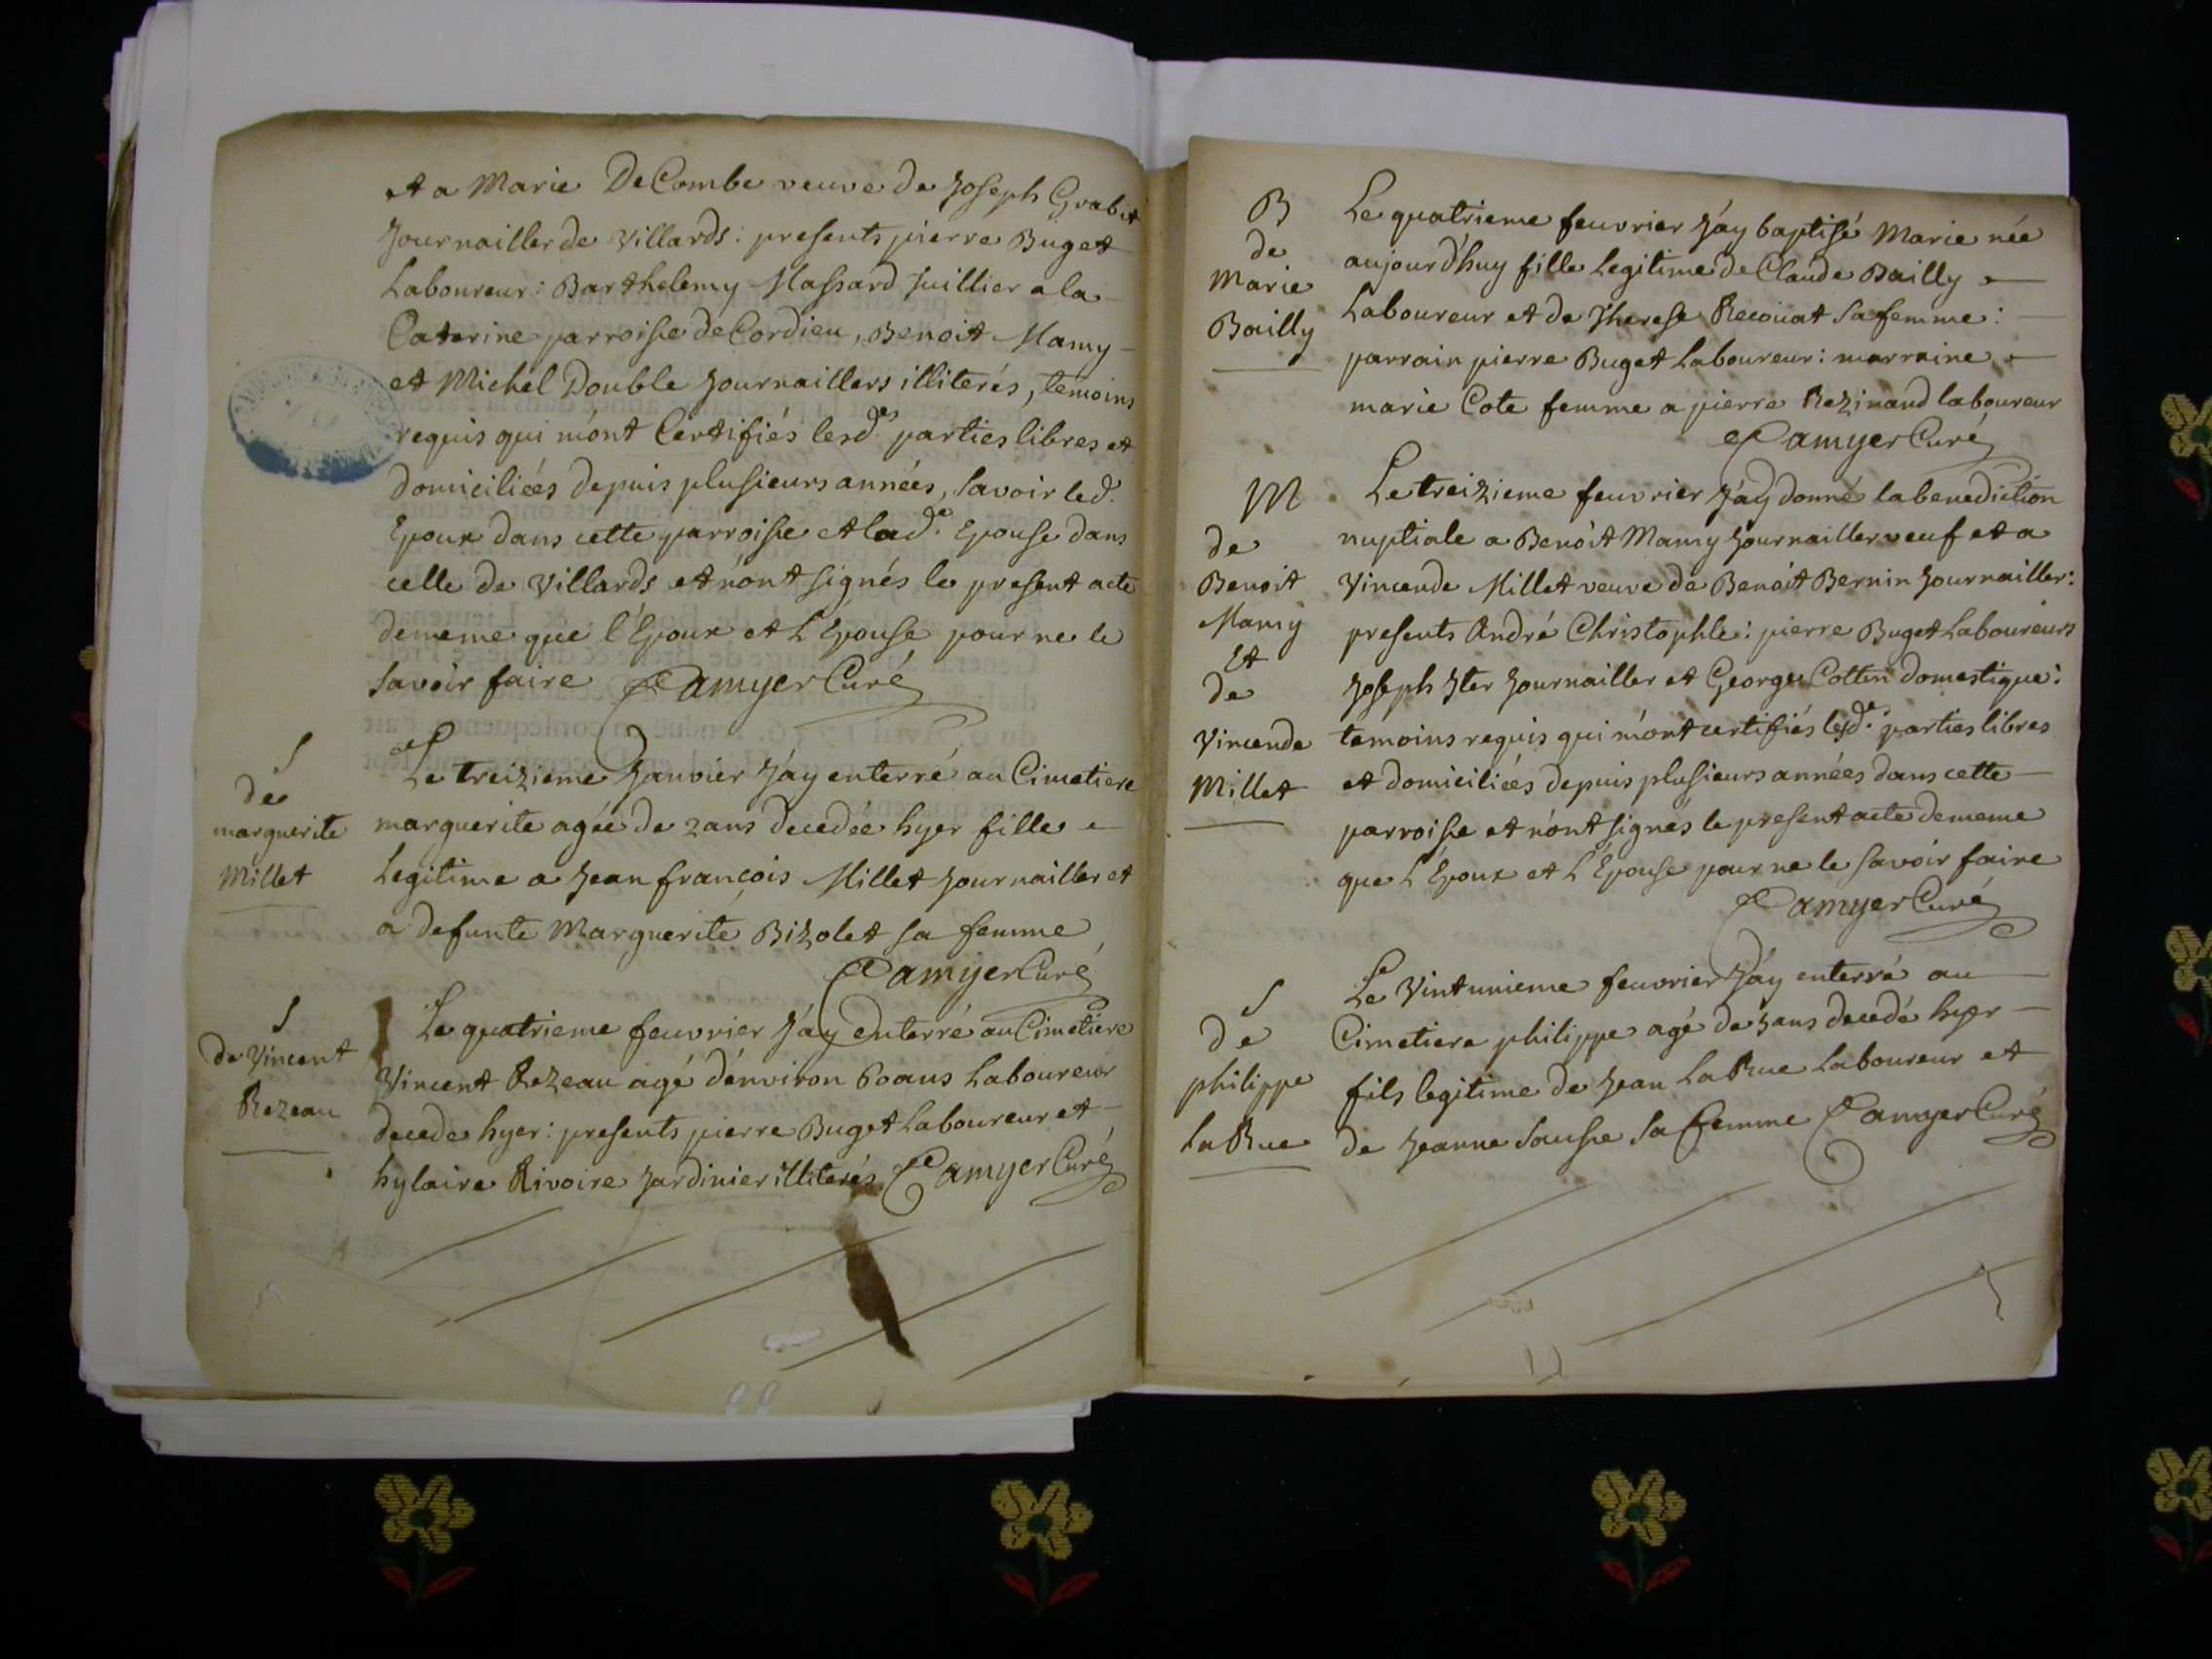 et a Marie DeCombe veuve de Joseph Grabit
Journailler de Villards : presents pierre Buget
Laboureur : Barthelemy Massard tuillier a la
Caterine parroisse de Cordieu, Benoit Mamy
et Michel Double Journaillers illiterés, temoins
requis qui m'ont Certifiés lesd.es parties libres et
domiciliées depuis plusieurs années, savoir led.
Epoux dans cette parroisse et lad.e Epouse dans
celle de Villards et n'ont signés le present acte
dememe que l'Epoux et l'Epouse pour ne le
savoir faire Camyer Curé
S
de
marguerite
Millet
Le treizieme Janvier J'ay enterré au Cimetiere
marguerite agée de 2 ans decedée hyer fille
Legitime a Jean françois Millet Journailler et
a defunte Marguerite Bizolet sa femme
Camyer Curé
S
de Vincent
Rezeau
Le quatrieme feuvrier J'ay Enterré au Cimetiere
Vincent Rezeau agé d'environ 60 ans Laboureur
decede hyer : presents pierre Buget Laboureur et
hylaire Rivoire Jardinier illiterés Camyer Curé
B
de
Marie
Bailly
Le quatrieme feuvrier J'ay baptisé Marie née
aujourd'huy fille Legitime de Claude Bailly
Laboureur et de Therese Recouat sa femme :
parrain pierre Buget Laboureur : marraine
marie Cote femme a pierre Rezinand laboureur
Camyer Curé
M
de
Benoit
Mamy
Et
de
Vincende
Millet
Le treizieme feuvrier J'ay donné la benediction
nuptiale a Benoit Mamy Journailler veuf et a
Vincende Millet veuve de Benoit Bernin Journailler :
presents André Christophle : pierre Buget Laboureurs
Joseph Iter Journailler et George Cottin domestique :
temoins requis qui m'ont certifiés lesd.es parties libres
et domiciliées depuis plusieurs années dans cette
parroisse et n'ont signés le present acte dememe
que l'Epoux et l'Epouse pour ne le savoir faire
Camyer Curé
S
de
philippe
La Rue
Le Vintunieme feuvrier J'ay enterré au
Cimetiere philippe agé de 3 ans decedé hyer
fils legitime de Jean La Rue Laboureur et
de Jeanne Sausse sa femme Camyer Curé